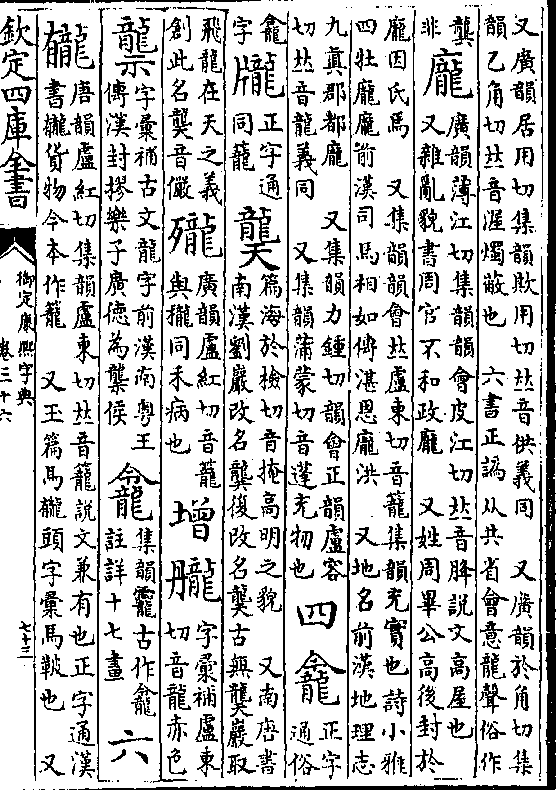 又廣韻居用切集韻欺用切𠀤音供義同　又廣韻於角切集
韻乙角切𠀤音渥燭蔽也　六書正譌从共省會意龍聲俗作
龔　龐　廣韻薄江切集韻韻會皮江切𠀤音胮說文高屋也
非　又雜亂貌書周官不和政龐　又姓周畢公高後封於
龐因氏焉　又集韻韻會𠀤盧東切音籠集韻充實也詩小雅
四牡龐龐前漢司馬相如傳湛恩龐洪　又地名前漢地理志
九眞郡都龐　又集韻力鍾切韻會正韻盧容
切𠀤音龍義同　又集韻蒲蒙切音蓬充牣也　四　龕　正字
通俗
龕
字　𤗲　正字通
同籠　䶮　篇海於檢切音掩高明之貌　又南唐書
南漢劉巖改名龔後改名䶮古無䶮巖取
飛龍在天之義
創此名䶮音儼　𣩄　廣韻盧紅切音籠
與㰍同禾病也　增　朧　字彙補盧東
切音龍赤色
龒　字彙補古文龍字前漢南粤王
傳漢封摎樂子廣德為龒侯　龕　集韻龗古作龕
註詳十七畫　六
龓　唐韻盧紅切集韻盧東切𠀤音籠說文兼有也正字通漢
書龓貨物今本作籠　又玉篇馬龓頭字彙馬鞁也　又
欽定四庫全書
御定康熙字典
卷三十六
七十三